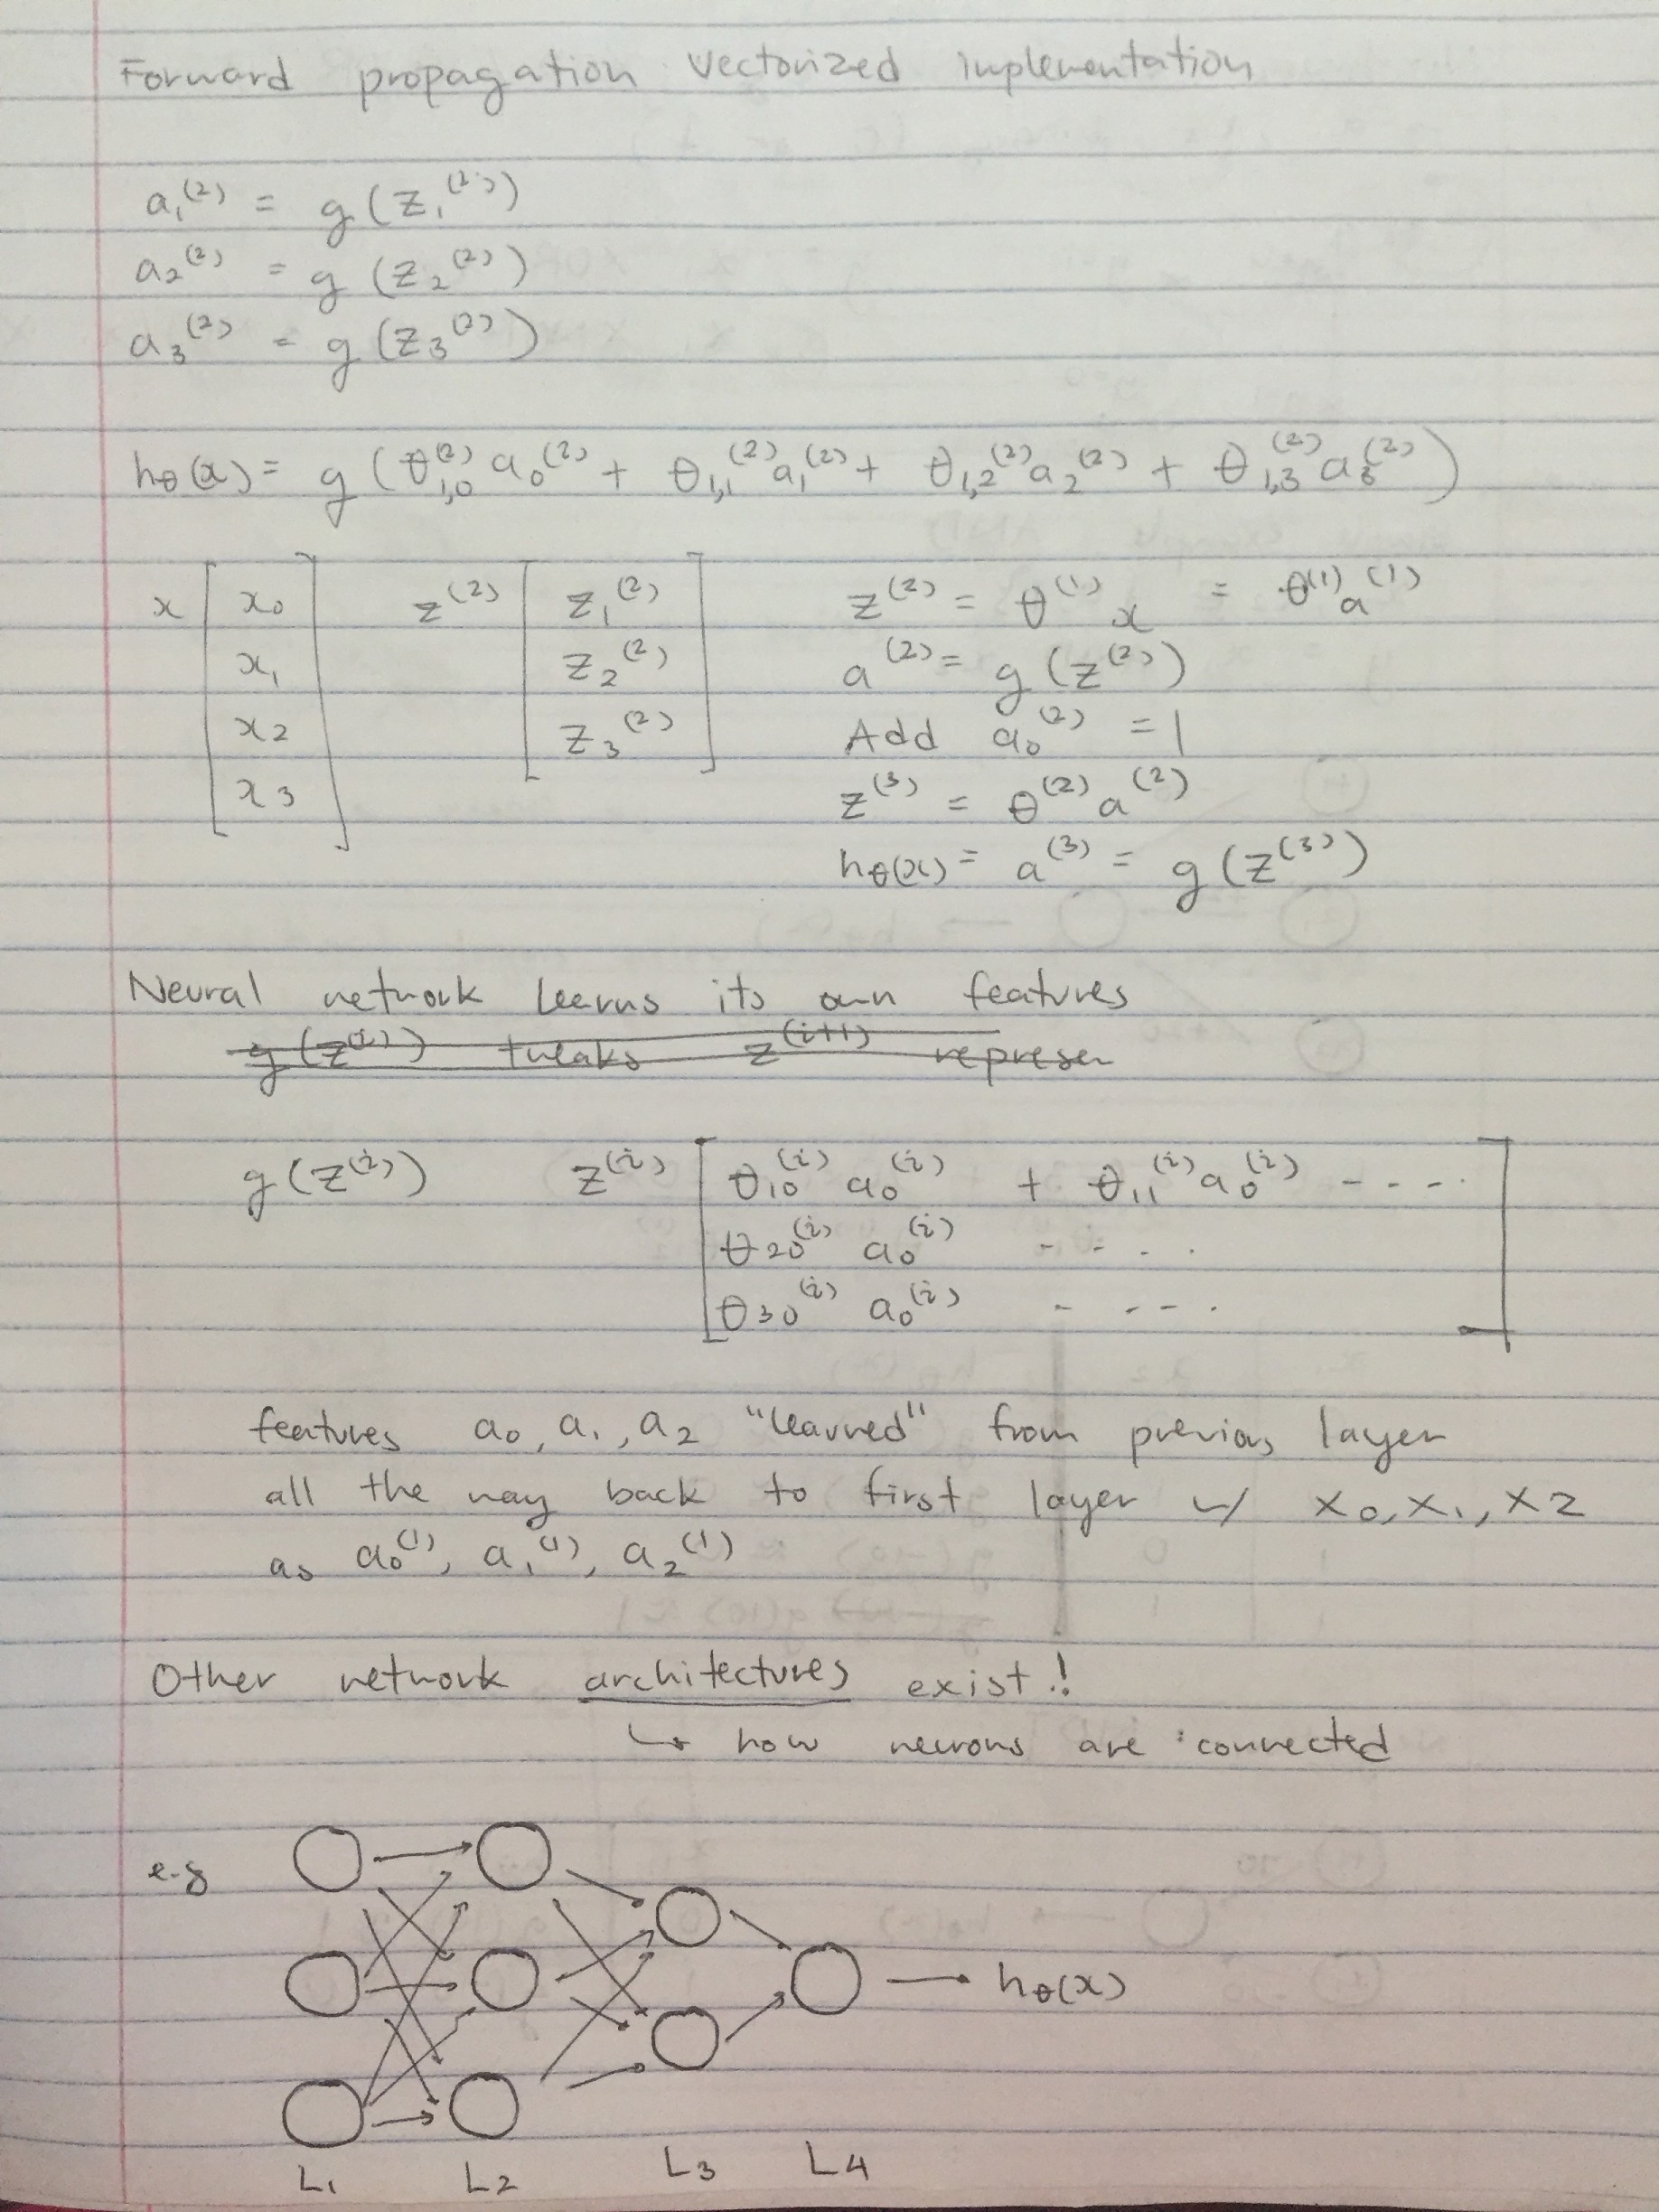 Forward propagation vectorized implementation
a₁⁽²⁾ = g(z₁⁽²⁾)
a₂⁽²⁾ = g(z₂⁽²⁾)
a₃⁽²⁾ = g(z₃⁽²⁾)
hθ(x) = g(θ₁,₀⁽²⁾a₀⁽²⁾ + θ₁,₁⁽²⁾a₁⁽²⁾ + θ₁,₂⁽²⁾a₂⁽²⁾ + θ₁,₃⁽²⁾a₃⁽²⁾)
x [x₀ x₁ x₂ x₃]
z⁽²⁾ [z₁⁽²⁾ z₂⁽²⁾ z₃⁽²⁾]
z⁽²⁾ = θ⁽¹⁾x = θ⁽¹⁾a⁽¹⁾
a⁽²⁾ = g(z⁽²⁾)
Add a₀⁽²⁾ = 1
z⁽³⁾ = θ⁽²⁾a⁽²⁾
hθ(x) = a⁽³⁾ = g(z⁽³⁾)
Neural network learns its own features
g(z⁽ⁱ⁾) tweaks z⁽ⁱ⁺¹⁾ represen
g(z⁽ⁱ⁾) z⁽ⁱ⁾ [θ₁₀⁽ⁱ⁾ a₀⁽ⁱ⁾ + θ₁₁⁽ⁱ⁾a₀⁽ⁱ⁾ ----
θ₂₀⁽ⁱ⁾ a₀⁽ⁱ⁾ ----
θ₃₀⁽ⁱ⁾ a₀⁽ⁱ⁾ ----]
features a₀, a₁, a₂ "learned" from previous layer
all the way back to first layer w/ x₀, x₁, x₂
as a₀⁽¹⁾, a₁⁽¹⁾, a₂⁽¹⁾
Other network architectures exist!
↳ how neurons are connected
e.g
→ hθ(x)
L₁ L₂ L₃ L₄